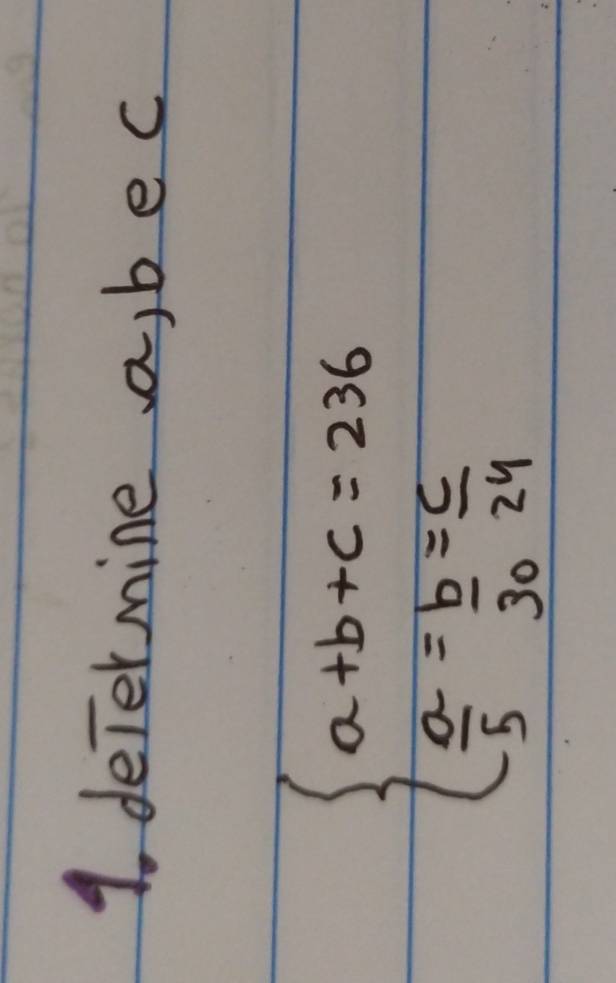 1. determine a, b e c
a + b + c = 236
a/5 = b/30 = c/24